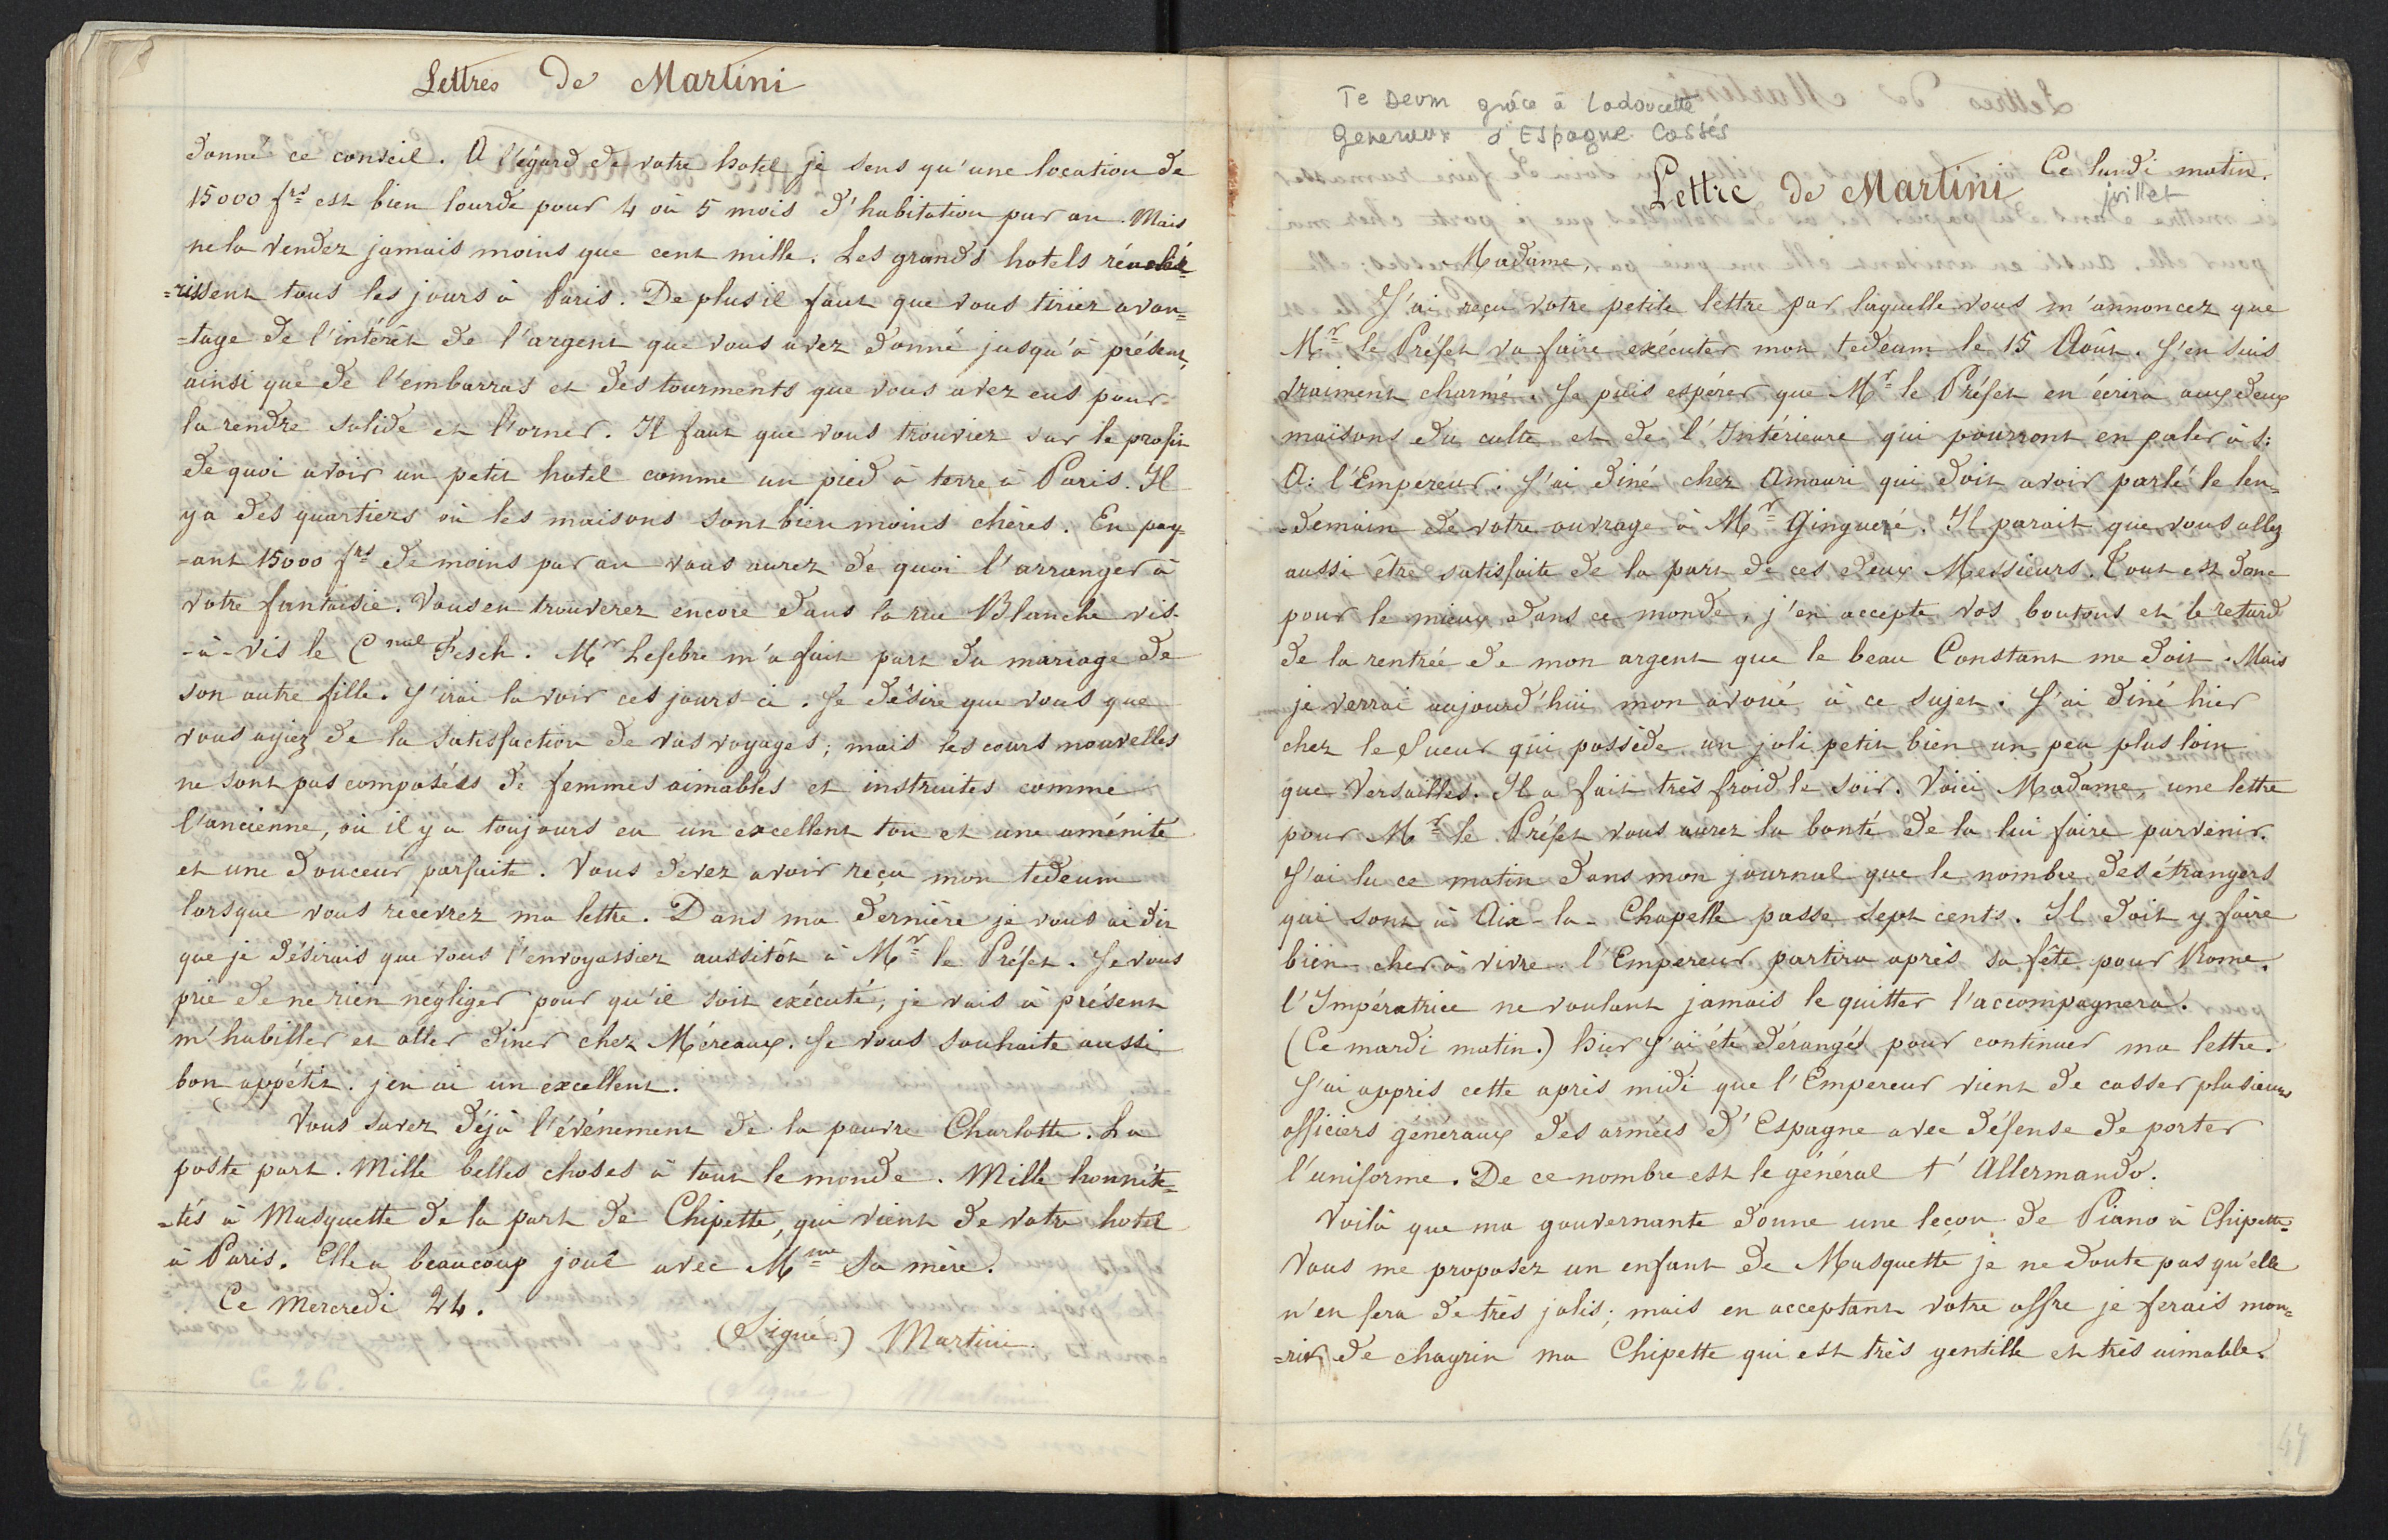 Lettres de Martini
donné ce conseil. A l'égard de votre hotel je sens qu'une location de
15000 frs est bien lourde pour 4 où 5 mois d'habitation par an. Mais
ne la vendez jamais moins que cent mille. Les grands hotels réenché
=rissent tous les jours à Paris. De plus il faut que vous tiriez avan=
=tage de l'intérêt de l'argent que vous avez donné jusqu'à présent,
ainsi que de l'embarras et des tourments que vous avez eus pour
la rendre solide et l'orner. Il faut que vous trouviez sur le profit
de quoi avoir un petit hotel comme un pied à terre à Paris. Il
y a des quartiers où les maisons sont bien moins chères. En pay=
=ant 15000 frs de moins par an vous aurez de quoi l'arranger à
votre fantaisie. Vous en trouverez encore dans la rue Blanche vis-
-à-vis le Cnal Fesch. Mr Lefebre m'a fait part du mariage de
son autre fille. J'irai la voir ces jours-ci. Je désire que vous que
vous ayiez de la satisfaction de vos voyages; mais les cours nouvelles
ne sont pas composéss de femmes aimables et instruites comme
l'ancienne, où il y a toujours eu un excellent ton et une aménité
et une douceur parfaite. Vous devez avoir reçu mon tedeum
lorsque vous recevrez ma lettre. Dans ma dernière je vous ai dit
que je désirais que vous l'envoyassiez aussitôt à Mr le Préfet. Je vous
prie de ne rien négliger pour qu'il soit exécuté, je vais à présent
m'habiller et aller diner chez Méreaux. Je vous souhaite aussi
bon appétit. j'en ai un excellent.
Vous savez déjà l'événement de la pauvre Charlotte. La
poste part. Mille belles choses à tout le monde. Mille honnête=
=tés à Musquette de la part de Chipette, qui vient de votre hotel
à Paris. Elle a beaucoup joué avec Mme sa mère.
Ce Mercredi 24.
(Signé) Martini.
Te Deum grâce à Ladoucette
Generaux d'Espagne cassés
Ce lundi matin.
juillet
Lettre de Martini
Madame,
J'ai reçu votre petite lettre par laquelle vous m'annoncez que
Mr le Préfet va faire exécuter mon tedeum le 15 Août. J'en suis
vraiment charmé. Je puis espérer que Mr le Préfet en écrira aux deux
maisons du culte et de l'Intérieure qui pourront en paler à S:
A: l'Empereur. J'ai diné chez Amauri qui doit avoir parlé le len=
=demain de votre ouvrage à Mr Ginguené. Il parait que vous allez
aussi être satisfaite de la part de ces deux Messieurs. Tout est donc
pour le mieux dans ce monde, j'en accepte vos boutons et le retard
de la rentrée de mon argent que le beau Constant me doit. Mais
je verrai aujourd'hui mon avoué à ce sujet. J'ai diné hier
chez le Sueur qui possède un joli petit bien un peu plus loin
que Versailles. Il a fait très froid le soir. Voici Madame, une lettre
pour Mr le Préfet vous aurez la bonté de la lui faire parvenir.
J'ai lu ce matin dans mon journal que le nombre des étrangers
qui sont à Aix-la-Chapelle passe sept cents. Il doit y faire
bien cher à vivre. l'Empereur partira après sa fête pour Rome.
l'Impératrice ne voulant jamais le quitter l'accompagnera.
(Ce mardi matin.) hier j'ai été dérangé pour continuer ma lettre.
J'ai appris cette après midi que l'Empereur vient de casser plusieurs
officiers généraux des armées d'Espagne avec défense de porter
l'uniforme. De ce nombre est le général t' Allermando.
Voilà que ma gouvernante donne une leçon de Piano à Chipette.
Vous me proposez un enfant de Musquette je ne doute pas qu'elle
n'en fera de très jolis; mais en acceptant votre offre je ferais mou=
=rir de chagrin ma Chipette qui est très gentille et très aimable.
47